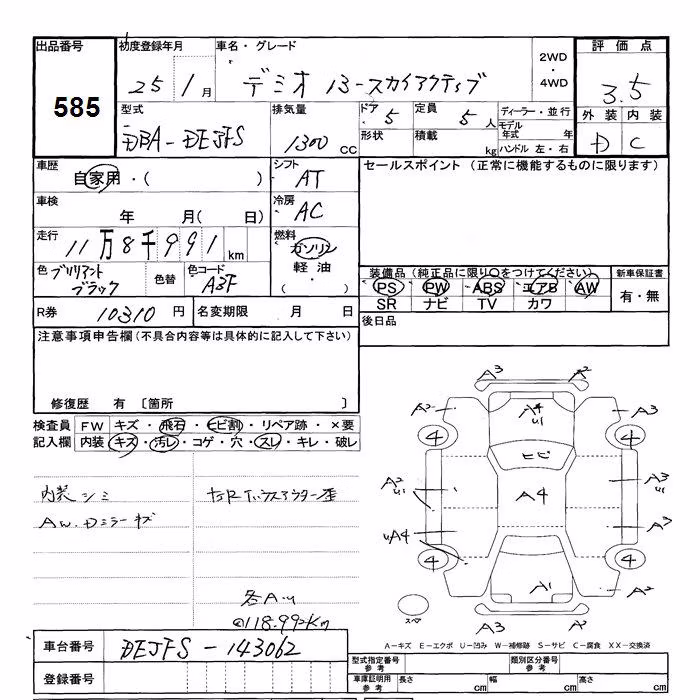 出品番号 初度登録年月 車名・グレード 2WD・4WD 評価点
585 25 1月 デミオ 13-スカイアクティブ 3.5
型式 排気量 ドア 5 定員 5人 ディーラー・並行 外装 内装
DBA-DEJFS 1300cc 形状 積載 kg モデル年式 年 D C
ハンドル 左・右
車歴 シフト セールスポイント (正常に機能するものに限ります)
自家用・( ) AT
車検 冷房
年 月( 日) AC
走行 燃料
11万8千991km ガソリン
色 ブリリアントブラック 色替 色コード A3F 軽油・( )
装備品 (純正品に限り○をつけてください) 新車保証書
PS PW ABS エアB AW 有・無
SR ナビ TV カワ
R券 10310円 名変期限 月 日 後日品
注意事項申告欄(不具合内容等は具体的に記入して下さい)
修復歴 有 〔箇所 〕
検査員 FW キズ・飛石・ヒビ割・リペア跡・×要
記入欄 内装 キズ・汚レ・コゲ・穴・スレ・キレ・破レ
内装シミ
AW.Dミラーキズ
各A.U
118.991km
A3 A2
A2 A4 U1 A3
4 4
ヒビ
A2 U1 A4 A3 U1
UA4 A2
4 4
A1 A2
スペア
A3 A2
A-キズ E-エクボ U-凹み W-補修跡 S-サビ C-腐食 XX-交換済
車台番号 DEJFS-143062
型式指定番号 参考 類別区分番号 参考
登録番号
車庫証明用 参考 長さ cm 幅 cm 高さ cm